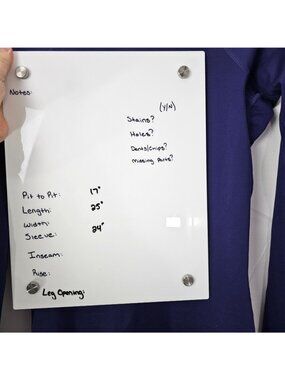 Notes:
(Y/N)
Stains?
Holes?
Dents/Chips?
Missing Parts?
Pit to Pit: 17"
Length: 25"
Width:
Sleeve: 24"
Inseam:
Rise:
Leg Opening: